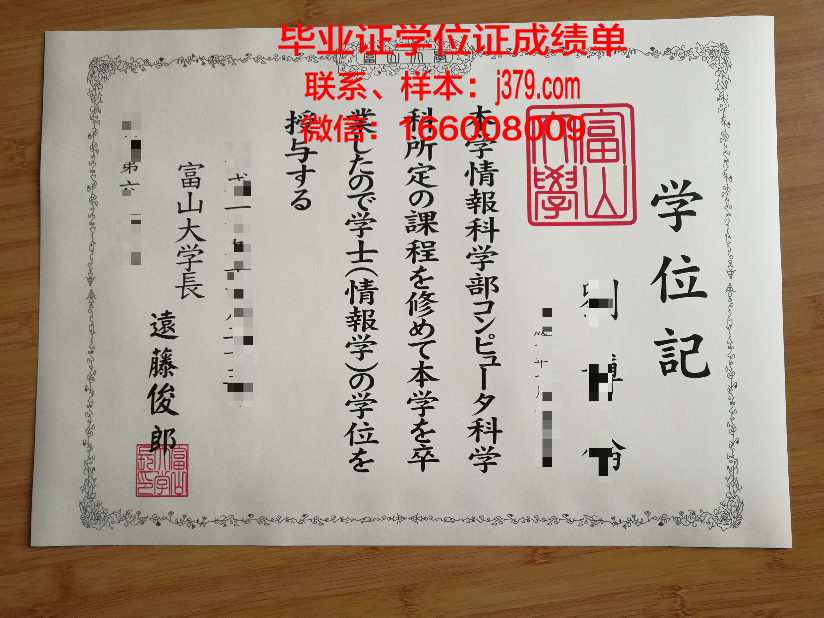 毕业证学位证成绩单
联系、样本：j379.com
微信：166008009
学位記
富山大學
本学情報科学部コンピュータ科学
科所定の課程を修めて本学を卒
業したので学士(情報学)の学位を
授与する
富山大学長
遠藤俊郎
第六